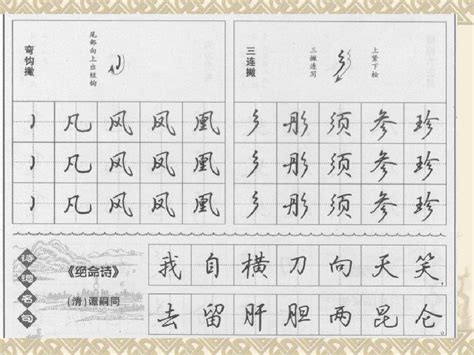 弯钩撇
尾部向上出短钩
三连撇
三撇连写
上紧下松
凡 风 凤 凰
凡 风 凤 凰
凡 风 凤 凰
彡 彤 须 参 珍
彡 彤 须 参 珍
彡 彤 须 参 珍
诗词名句
《绝命诗》
(清)谭嗣同
我自横刀向天笑，
去留肝胆两昆仑。